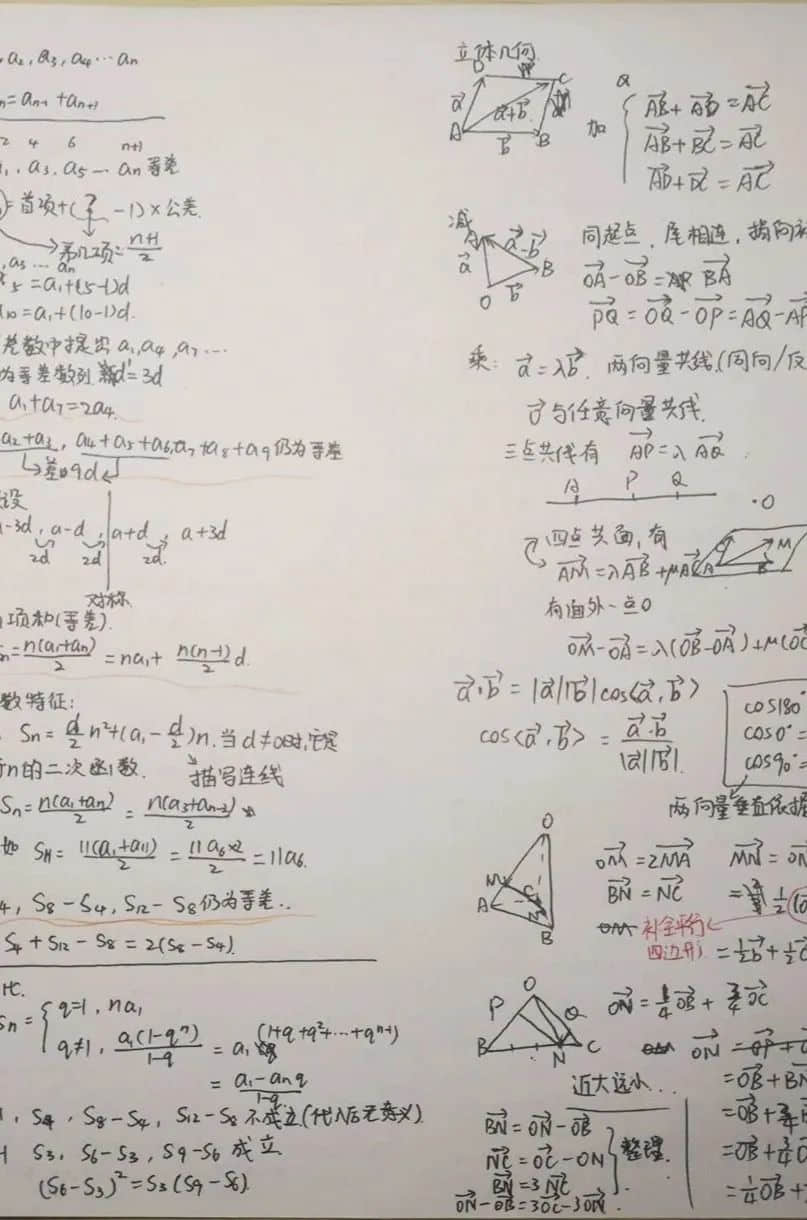 a₂, a₃, a₄ … aₙ
= aₙ₋₁ + aₙ₊₁
2 4 6 n+1
a₃, a₅ … aₙ 等差
= 首项+(? -1)×公差
第几项 = (n+1)/2
, a₃ … aₙ
₅ = a₁+(5-1)d
a₁₀ = a₁+(10-1)d.
差数中提出 a₁, a₄, a₇ …
为等差数列 新d' = 3d
a₁ + a₇ = 2a₄
a₂+a₃, a₄+a₅+a₆, a₇+a₈+a₉ 仍为等差
差为9d
设
-3d, a-d, a+d, a+3d
2d 2d 2d
对称
项和(等差).
= n(a₁+aₙ)/2 = na₁ + n(n-1)/2 d.
数特征:
Sₙ = d/2 n² + (a₁ - d/2)n. 当d≠0时,它是
n的二次函数. 描写连线
Sₙ = n(a₁+aₙ)/2 = n(a₃+aₙ₋₂)/2
如 S₁₁ = 11(a₁+a₁₁)/2 = 11a₆×2/2 = 11a₆.
4, S₈-S₄, S₁₂-S₈ 仍为等差..
S₄ + S₁₂ - S₈ = 2(S₈-S₄).
比.
Sₙ = { q=1, na₁
q≠1, a₁(1-qⁿ)/(1-q) = a₁ (1+q+q²+…+qⁿ⁻¹)
= (a₁-aₙq)/(1-q)
, S₄, S₈-S₄, S₁₂-S₈ 不成立(代入后无意义)
S₃, S₆-S₃, S₉-S₆ 成立
(S₆-S₃)² = S₃(S₉-S₆)
立体几何
D C
a⃗ a⃗+b⃗
A b⃗ B
加 { AB⃗ + AD⃗ = AC⃗
AB⃗ + BC⃗ = AC⃗
AD⃗ + DC⃗ = AC⃗
减 A a⃗-b⃗
a⃗ B
O b⃗
同起点, 尾相连, 指向
OA⃗ - OB⃗ = BA⃗
PQ⃗ = OQ⃗ - OP⃗ = AQ⃗ - AP
乘: a⃗ = λb⃗. 两向量共线.(同向/反
0⃗与任意向量共线.
三点共线有 AP⃗ = λ AQ⃗.
A P Q
·O
四点共面, 有
AM⃗ = λAB⃗ + μAC⃗
A B M
有面外一点O
OM⃗ - OA⃗ = λ(OB⃗ - OA⃗) + μ(OC
a⃗·b⃗ = |a⃗||b⃗|cos⟨a⃗, b⃗⟩
cos⟨a⃗, b⃗⟩ = a⃗·b⃗/|a⃗||b⃗|.
cos180°
cos0° =
cos90° =
两向量垂直依据
O
M C
A N
B
OM⃗ = 2MA⃗ MN⃗ = ON
BN⃗ = NC⃗
补全平行
四边形
= ½b⃗ + ½c
O
P Q
B N C
ON⃗ = ¼OB⃗ + ¾OC⃗
ON⃗ = OP⃗ +
近大远小…
= OB⃗ + BN
= OB⃗ + ¾B
= OB⃗ + ¾(O
= ¼OB⃗ +
BN⃗ = ON⃗ - OB⃗
NC⃗ = OC⃗ - ON
BN⃗ = 3NC⃗
ON⃗ - OB⃗ = 3OC⃗ - 3ON⃗
整理.